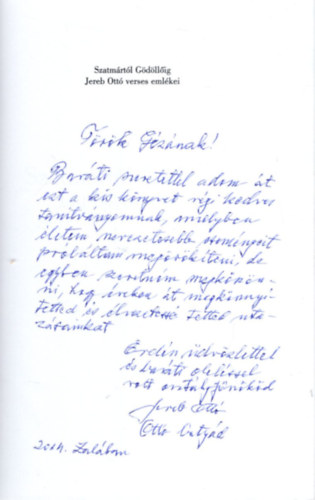 Szatmártól Gödöllőig
Jereb Ottó verses emlékei
Török Gézának!
Baráti szeretettel adom át
ezt a kis könyvet régi kedves
tanítványomnak, amelyben
életem nevezetesebb eseményeit
próbáltam megörökíteni, de
egyben szeretném megköszön-
ni, hogy éveken át megkönnyí-
tetted és élvezetessé tetted uta-
zásainkat
Erdélyi üdvözlettel
és baráti öleléssel
volt osztályfőnököd
Jereb Ottó
Ottó bátyád
2014.